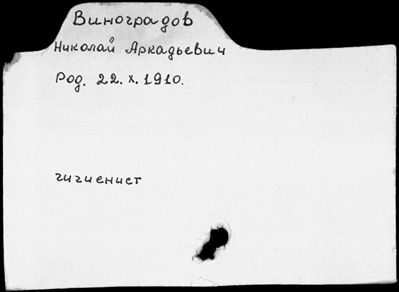 Виноградов
Николай Аркадьевич
Род. 22.X.1910.
гигиенист